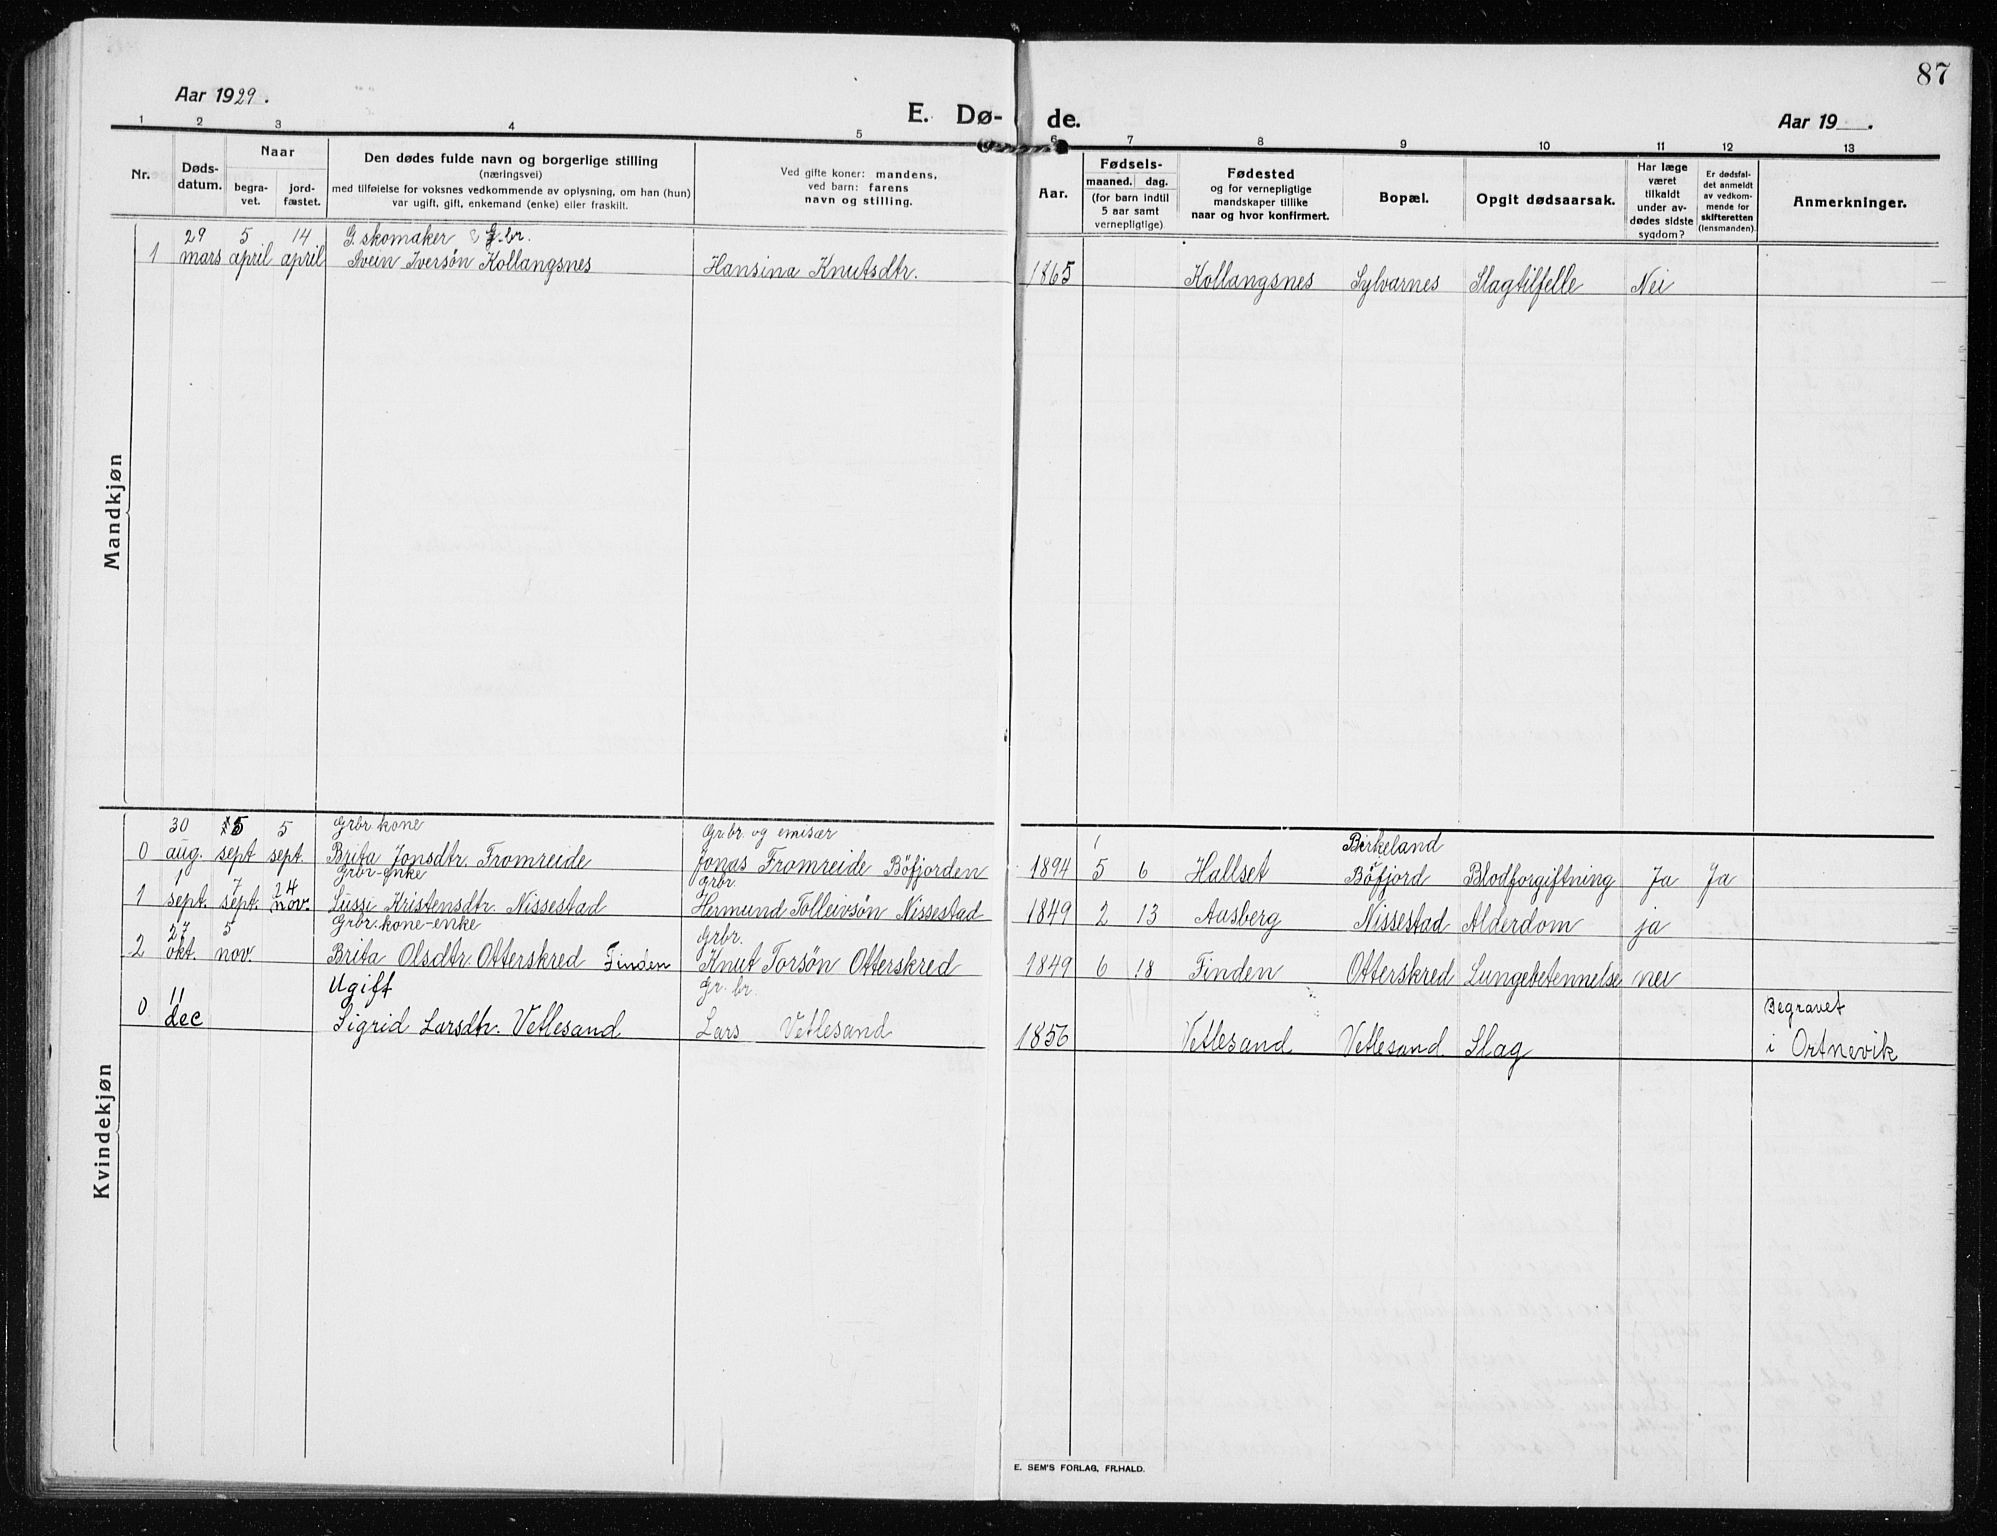 87
Aar 1929.
E. Dø-
de.
Aar 19 .
1 2 3 4 5 6 7 8 9 10 11 12 13
Nr.
Døds-
datum.
Naar
begra-
vet.
jord-
fæstet.
Den dødes fulde navn og borgerlige stilling
(næringsvei)
med tilføielse for voksnes vedkommende av oplysning, om han (hun)
var ugift, gift, enkemand (enke) eller fraskilt.
Ved gifte koner: mandens,
ved barn: farens
navn og stilling.
Aar.
Fødsels-
maaned. dag.
(for barn indtil
5 aar samt
vernepligtige)
Fødested
og for vernepligtige
mandskaper tillike
naar og hvor konfirmert.
Bopæl.
Opgit dødsaarsak.
Har læge
været
tilkaldt
under av-
dødes sidste
sygdom?
Er dødsfal-
det anmeldt
av vedkom-
mende for
skifteretten
(lensmanden).
Anmerkninger.
Mandkjøn
29 5 14 G. skomaker & G.br.
1 mars april april Svein Iversøn Kollangsnes Hansina Knutsdtr. 1865 Kollangsnes Sylvarnes Slagtilfelle Nei
Kvindekjøn
30 5 5 Grbr. kone Gr.br. og emisær Birkeland
0 aug. sept sept. Brita Jonsdtr. Fromreide Jonas Fromreide Böfjorden 1894 5 6 Hallset Böfjord Blodforgiftning Ja Ja
1 7 24 Grbr-enke Grbr
1 sept. sept. nov. Lussi Kristensdtr. Nissestad Hermund Tolleivsøn Nissestad 1849 2 13 Aasberg Nissestad Alderdom ja
27 5 Grbr. kone-enke Grbr.
2 okt. nov. Brita Olsdtr. Otterskred Finden Knut Torsøn Otterskred 1849 6 18 Finden Otterskred Lungebetennelse nei
11 Ugift Gr. br. Begravet
0 dec Sigrid Larsdtr. Vetlesand Lars Vetlesand 1856 Vetlesand Vetlesand Slag i Ortnevik
E. SEM'S FORLAG, FR.HALD.